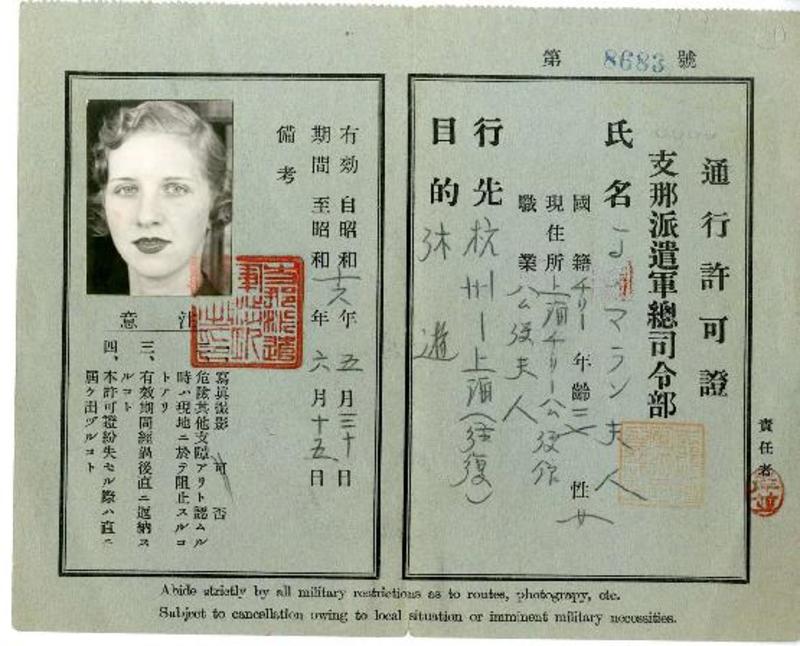 第 8683 號
通行許可證
支那派遣軍總司令部
責任者
氏名 マラン夫人
國籍 チリー 年齡 三 性 女
現住所 上海チリー公使館
職業 公使夫人
行先 杭州ー上海(往復)
目的
有効 自昭和十六年五月三十日
期間 至昭和 年六月十五日
備考
注意
寫眞撮影 可 否
危險其他支障アリト認ムル
時ハ現地ニ於テ阻止スルコ
トアリ
三、有效期間經過後直ニ返納ス
ルコト
四、本許可證紛失セル際ハ直ニ
屆ケ出ヅルコト
Abide strictly by all military restrictions as to routes, photograpy, etc.
Subject to cancellation owing to local situation or imminent military necessities.